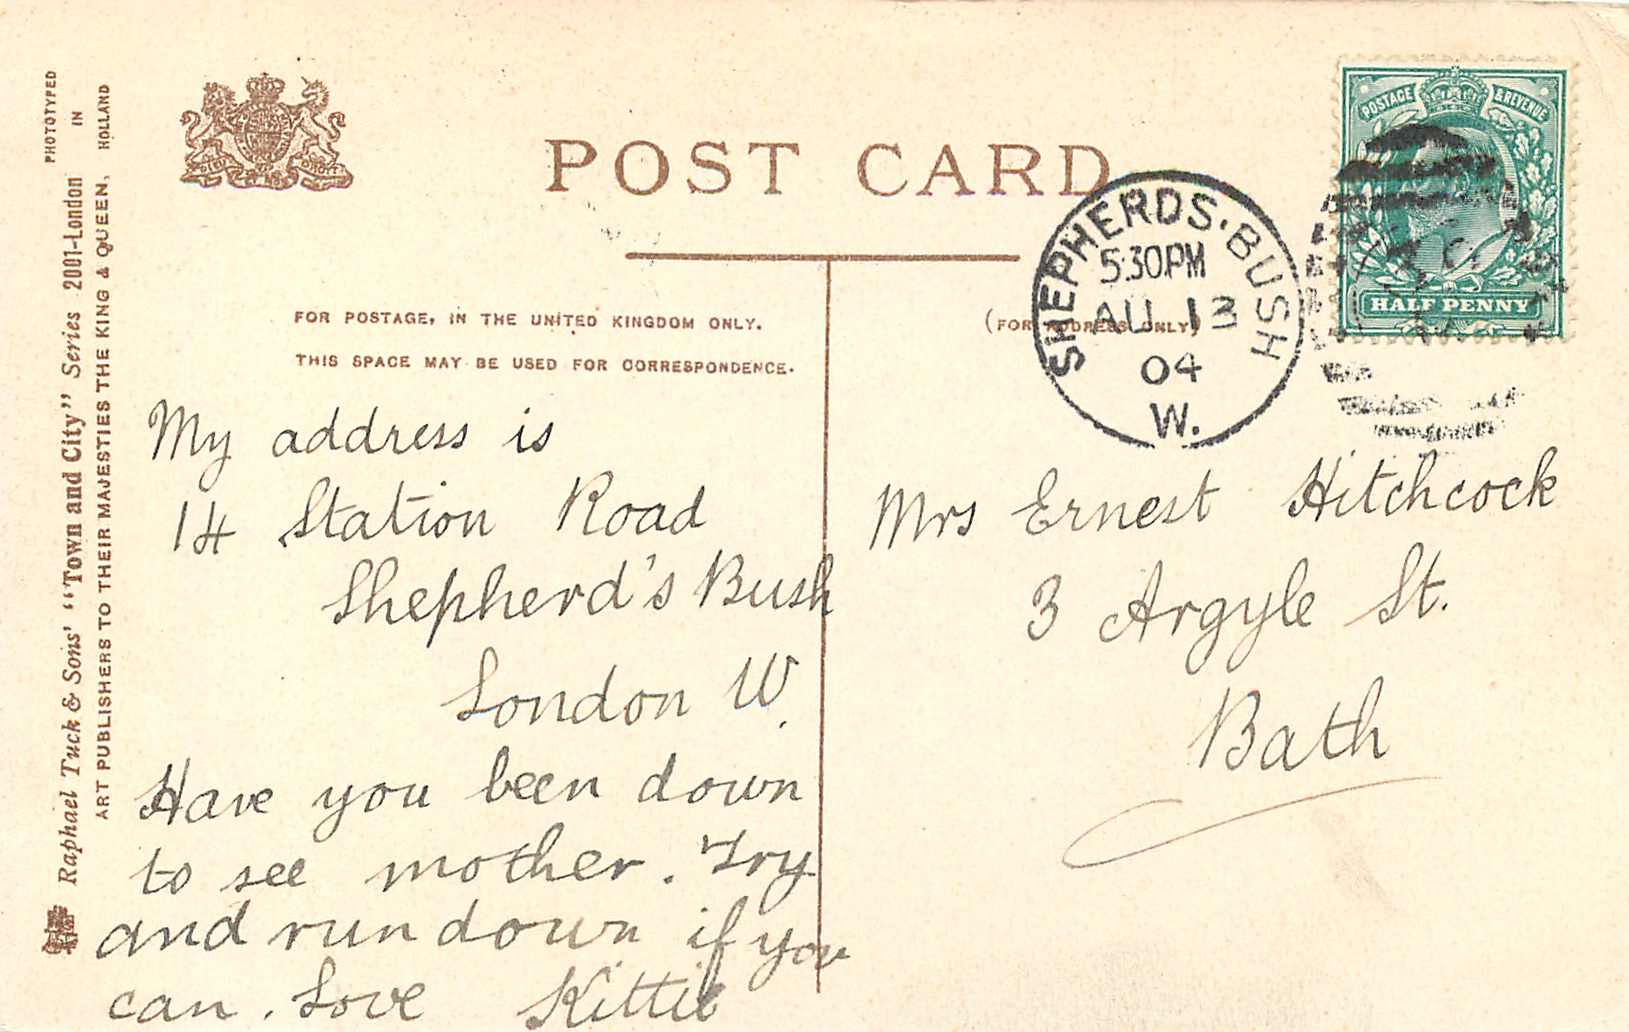 PHOTOTYPED IN HOLLAND
Raphael Tuck & Sons' "Town and City" Series 2001-London
ART PUBLISHERS TO THEIR MAJESTIES THE KING & QUEEN.
POST CARD
FOR POSTAGE, IN THE UNITED KINGDOM ONLY.
THIS SPACE MAY BE USED FOR CORRESPONDENCE.
(FOR ADDRESS ONLY)
SHEPHERDS.BUSH
5.30PM
AU 13
04
W.
POSTAGE & REVENUE
HALF PENNY
My address is
14 Station Road
Shepherd's Bush
London W.
Have you been down
to see mother. Try
and run down if you
can. Love Kittie
Mrs Ernest Hitchcock
3 Argyle St.
Bath